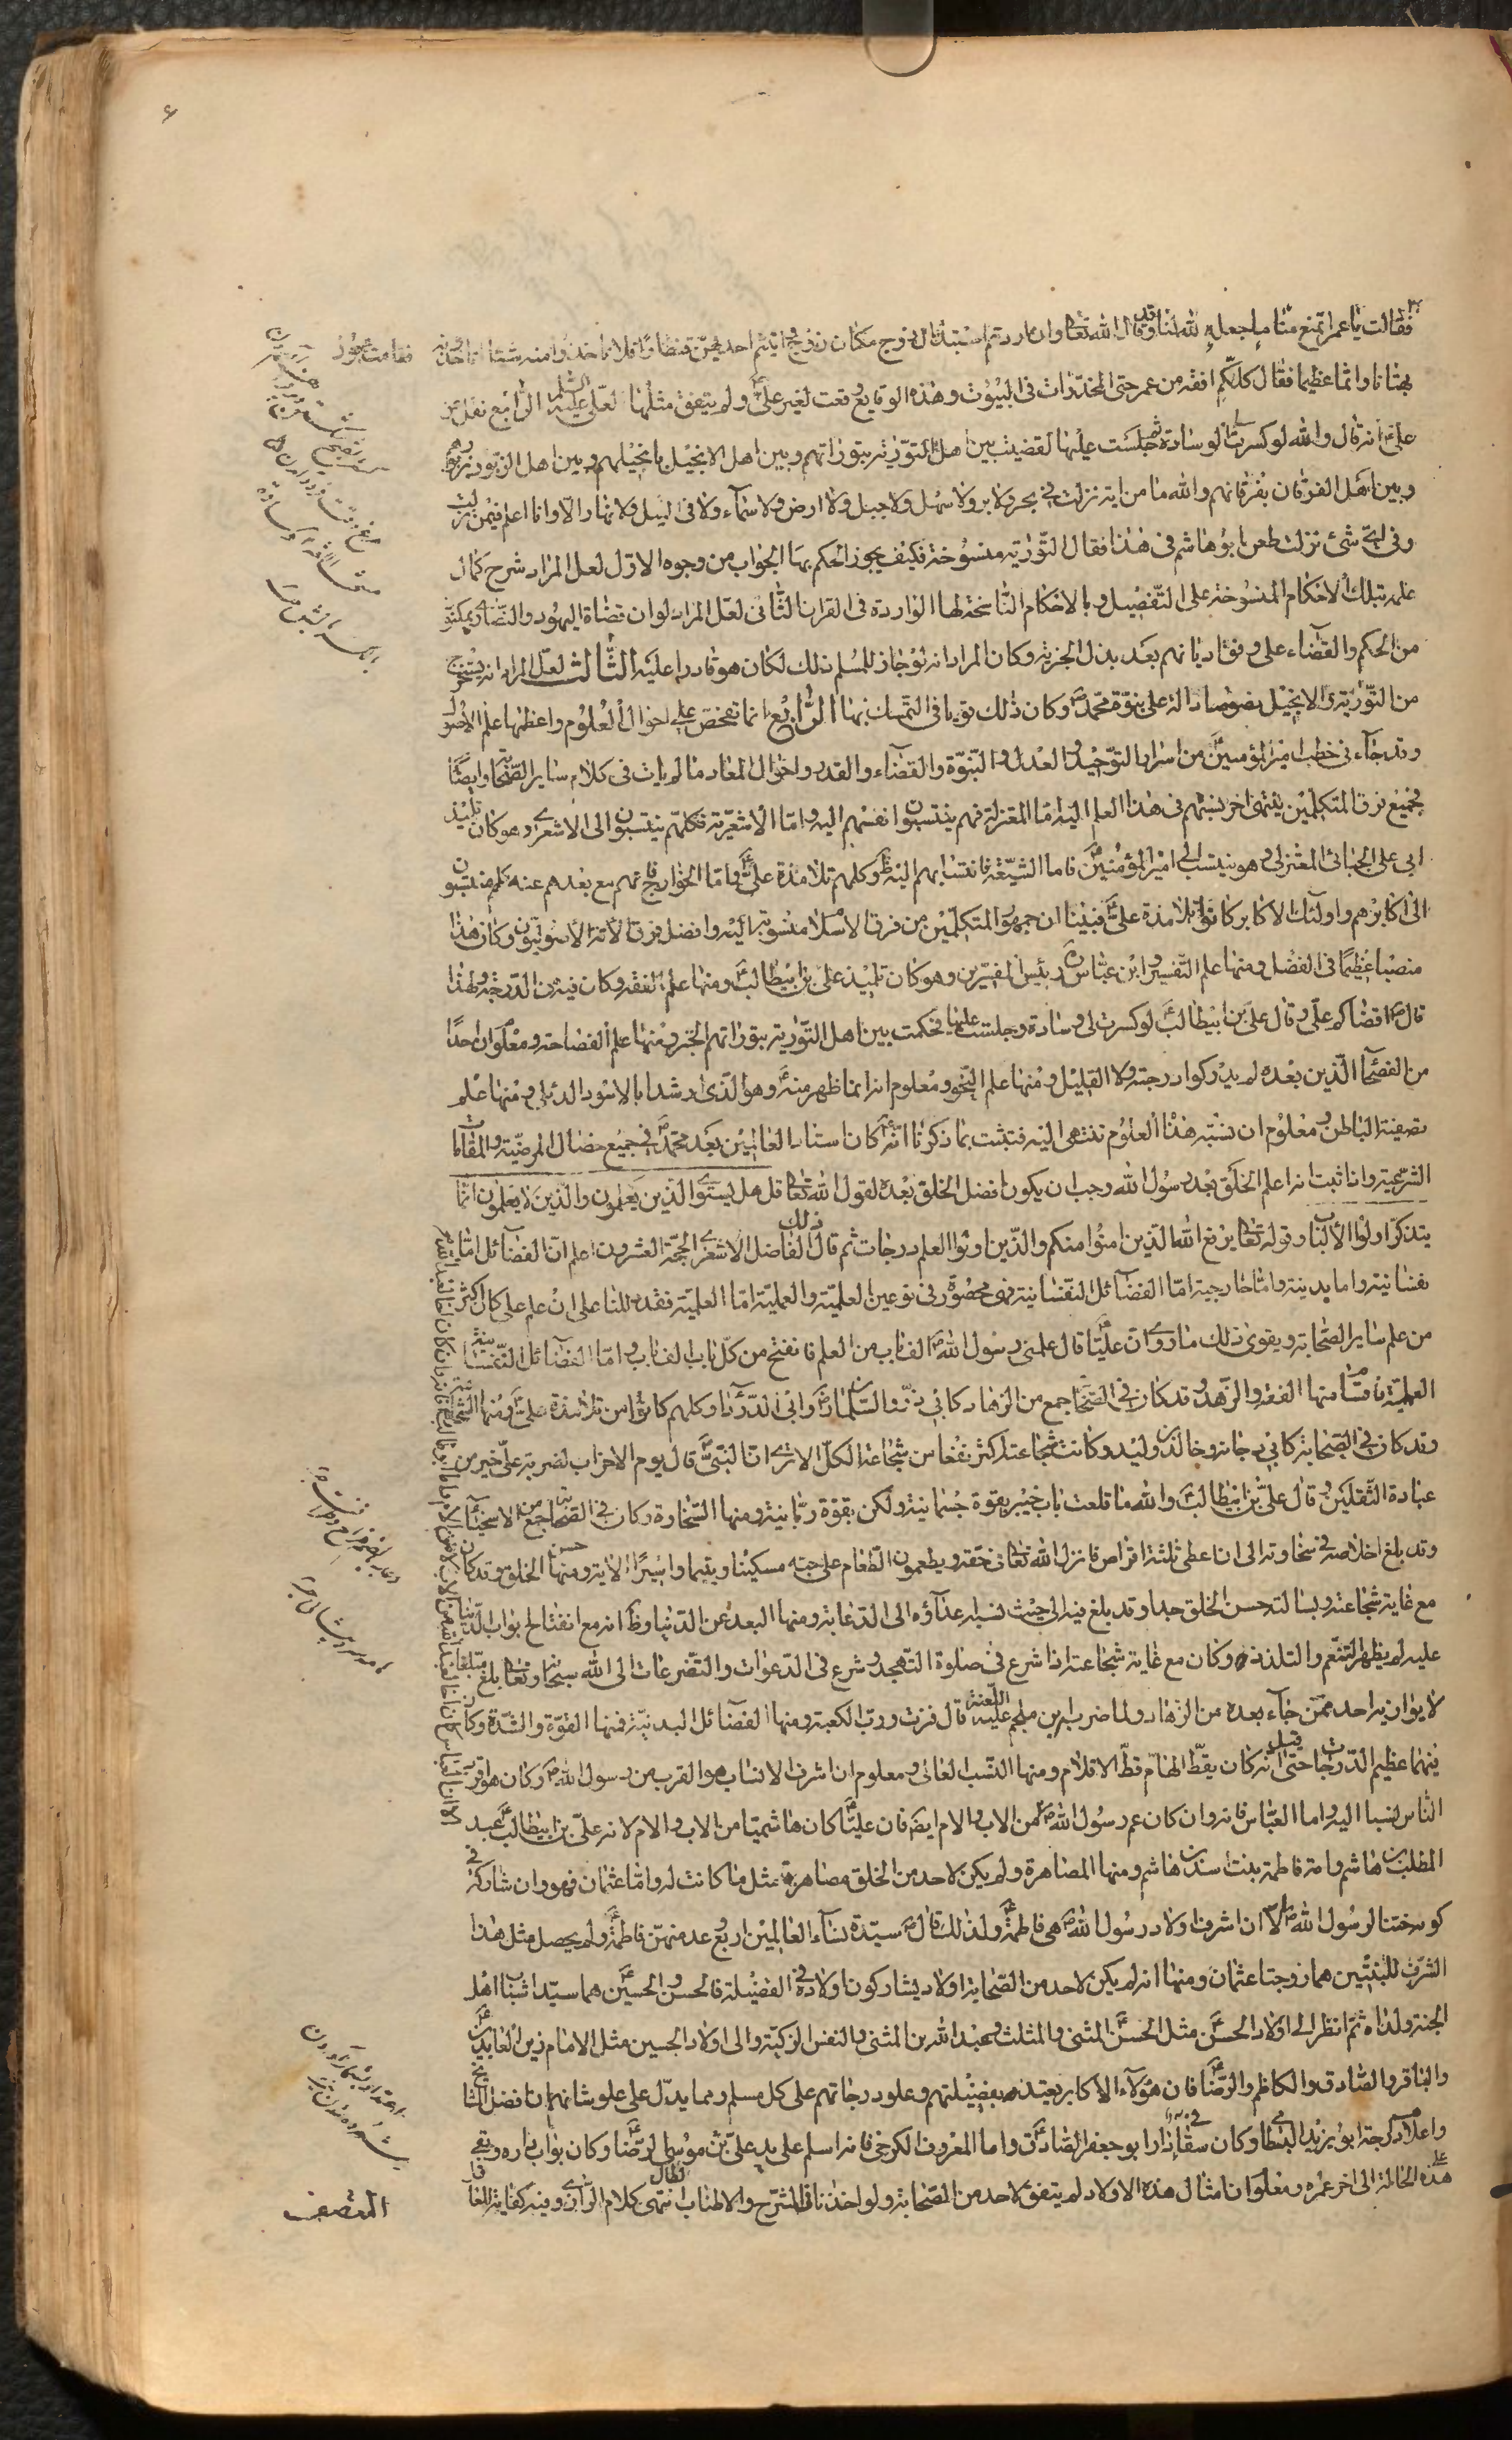 فقامت عجوز
فقالت يا عمر اتمنع منا ما جعله الله لنا وقد قال الله تعا وان اردتم استبدال زوج مكان زوج واتيتم احديهن قنطارا فلا تاخذوا منه شيئا اتاخذونه
بهتانا واثما عظيما فقال كلكم افقه من عمر حتى المخدرات في البيوت وهذه الوقايع وقعت لغير علي ولم يتفق مثلها لعلي عليه السلم الرابع نقل عن
علي انه قال والله لو كسرت لي الوسادة ثم جلست عليها لقضيت بين اهل التورية بتوراتهم وبين اهل الانجيل بانجيلهم وبين اهل الزبور بزبورهم
وبين اهل الفرقان بفرقانهم والله ما من اية نزلت في بحر ولا بر ولا سهل ولا جبل ولا ارض ولا سماء ولا في ليل ولا نهار الا وانا اعلم فيمن نزلت
وفي اي شئ نزلت طعن ابو هاشم في هذا فقال التورية منسوخة فكيف يجوز الحكم بها الجواب من وجوه الاول لعل المراد شرح كمال
علمه بتلك الاحكام المنسوخة على التفصيل وبالاحكام الناسخة لها الواردة في القران الثاني لعل المراد لو ان قضاة اليهود والنصارى يمكنوا
من الحكم والقضاء على وفق اديانهم بعد بذل الجزية وكان المراد انه لو جاز للمسلم ذلك لكان هو قادرا عليه الثالث لعل المراد انه يستخرج
من التورية والانجيل نصوصا دالة على نبوة محمد ص وكان ذلك قويا في التمسك بها الرابع انما تفحص على احوال العلوم واعظمها علم الاصول
وقد جاء في خطب امير المؤمنين من اسرار التوحيد والعدل والنبوة والقضاء والقدر واحوال المعاد ما لم يات في كلام ساير الصحابة وايضا
فجميع فرق المتكلمين ينتهى اخر نسبتهم في هذا العلم اليه اما المعتزلة فهم ينتسبون انفسهم اليه واما الاشعرية فكلهم ينتسبون الى الاشعرى وهو كان تلميذ
ابي علي الجبائي المعتزلي وهو ينتسب الى امير المؤمنين فاما الشيعة فانتسابهم اليه ظ وكلهم تلامذة علي واما الخوارج فانهم مع بعدهم عنه كلهم ينتسبون
الى اكابرهم واولئك الاكابر كانوا تلامذة علي فبينا ان جمهور المتكلمين من فرق الاسلام منسوبة اليه وافضل فرق الامة الاصوليون وكان هذا
منصبا عظيما في الفضل ومنها علم التفسير وابن عباس رئيس المفسرين وهو كان تلميذ علي بن ابيطالب ومنها علم الفقه وكان فيه في الدرجة ولهذا
قال ص اقضاكم علي وقال علي بن ابيطالب لو كسرت لى وسادة وجلست عليها فحكمت بين اهل التورية بتوراتهم الخبر ومنها علم الفصاحة ومعلوم ان احدا
من الفصحاء الذين بعده لم يدركوا درجته ولا القليل ومنها علم النحو ومعلوم انه انما ظهر منه وهو الذى ارشد ابا الاسود الدئلي ومنها علم
تصفية الباطن ومعلوم ان نسبة هذه العلوم تنتهى اليه فتثبت بما ذكرنا انه كان استاد العالمين بعد محمد ص في جميع خصال المرضية والمقامات
الشرعية واذا ثبت انه اعلم الخلق بعد رسول الله وجب ان يكون افضل الخلق بعده لقول الله تعا قل هل يستوى الذين يعلمون والذين لا يعلمون انما
يتذكر اولوا الالباب وقوله تعا يرفع الله الذين امنوا منكم والذين اوتوا العلم درجات ثم قال الفاضل الاشعرى الحجة العشرون اعلم ان الفضائل اما
نفسانية واما بدنية واما خارجية اما الفضائل النفسانية فهى محصورة في نوعين العلمية والعملية اما العلمية فقد دللنا على ان علم على كان اكثر
من علم ساير الصحابة ويقوى ذلك ما روى ان عليا قال علمنى رسول الله ص الف باب من العلم فانفتح من كل باب الف باب واما الفضائل النفسانية
العملية فاقسام منها العفة والزهد وقد كان في الصحابة جمع من الزهاد كابي ذر والسلمان وابي الدرداء وكلهم كانوا من تلامذة علي ومنها الشجاعة
وقد كان في الصحابة كابي دجانة وخالد بن وليد وكانت شجاعته اكثر نفعا من شجاعة الكل الا ترى ان النبي ص قال يوم الاحزاب لضربة علي خير من
عبادة الثقلين وقال علي بن ابيطالب والله ما قلعت باب خيبر بقوة جسمانية ولكن بقوة ربانية ومنها السخاوة وكان في الصحابة جمع من الاسخياء
وقد بلغ اخلاصه في سخاوته الى ان اعطى ثلثة اقراص فانزل الله تعا في حقه ويطعمون الطعام على حبه مسكينا ويتيما واسيرا الاية ومنها حسن الخلق وقد كان
مع غاية شجاعته وبسالته حسن الخلق جدا وقد بلغ فيه الى حيث نسبه اعداؤه الى الدعابة ومنها البعد عن الدنيا وظ انه مع انفتاح ابواب الدنيا
عليه لم يظهر التنعم والتلذذ وكان مع غاية شجاعته اذا شرع في صلوة التهجد وشرع في الدعوات والتضرعات الى الله سبحا وتعا بلغ مبلغا
لا يوازيه احد ممن جاء بعده من الزهاد ولما ضربه ابن ملجم عليه اللعنة قال فزت ورب الكعبة ومنها الفضائل البدنية فمنها القوة والشدة وكان
فيهما عظيم الدرجات حتى قيل انه كان يقط الهام قط الاقلام ومنها النسب العالى ومعلوم ان اشرف الانساب هو القرب من رسول الله ص وكان هو اقرب
الناس نسبا اليه واما العباس فانه وان كان عم رسول الله ص من الاب والام ايضا فان عليا كان هاشميا من الاب والام لانه علي بن ابيطالب بن عبد
المطلب بن هاشم وامه فاطمة بنت اسد بن هاشم ومنها المصاهرة ولم يكن لاحد من الخلق مصاهرة مثل ما كانت له واما عثمان فهو وان شاركه في
كونه ختنا لرسول الله ص الا ان اشرف اولاد رسول الله ص هي فاطمة ولذلك قال ص سيدة نساء العالمين اربع وعد منهن فاطمة ولم يحصل مثل هذا
الشرف للبنتين هما زوجتا عثمان ومنها انه لم يكن لاحد من الصحابة اولاد يشاركون اولاده في الفضيلة فالحسن والحسين هما سيدا شباب اهل
الجنة ولداه ثم انظر الى اولاد الحسن مثل الحسن المثنى والمثلث وعبد الله بن المثنى والنفس الزكية والى اولاد الحسين مثل الامام زين العابدين
والباقر والصادق والكاظم والرضا فان هؤلاء الاكابر يعتد بفضيلتهم وعلو درجاتهم على كل مسلم ومما يدل على علو شانهم ان افضل المشايخ
واعلاهم درجة ابو يزيد البسطامي وكان سقاء في دار ابو جعفر الصادق واما المعروف الكرخي فانه اسلم على يد علي بن موسى الرضا وكان بواب داره وبقي
على هذه الحالة الى اخر عمره ومعلوم ان امثال هذه الاولاد لم يتفق لاحد من الصحابة ولو اخذنا في الشرح والاطناب لطال انتهى كلام الرازى وفيه كفاية للعاقل
المنصف